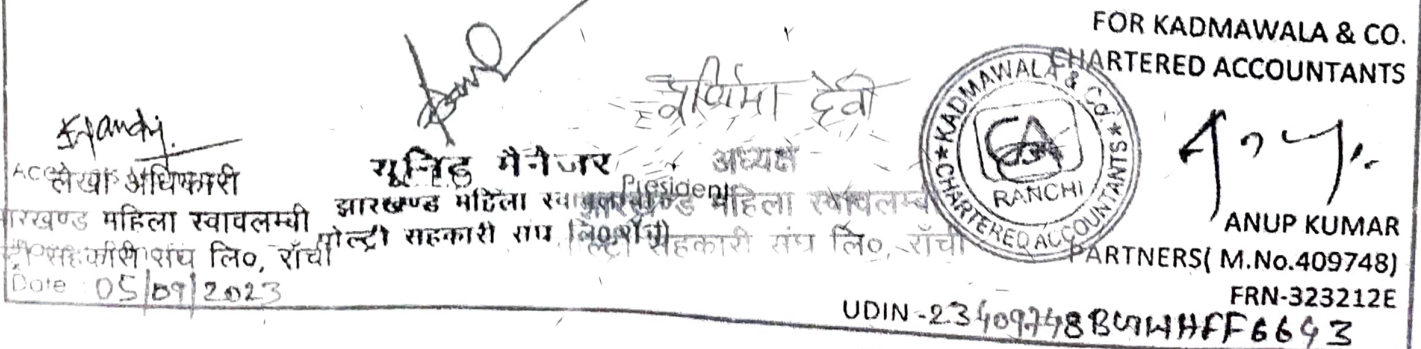 FOR KADMAWALA & CO.
CHARTERED ACCOUNTANTS
पूर्णिमा देवी
लेखा अधिकारी
झारखण्ड महिला स्वावलम्बी
सहकारी संघ लि०, राँची
Date 05/09/2023
यूनिट मैनेजर
झारखण्ड महिला
पोल्ट्री सहकारी संघ लि० राँची
अध्यक्ष
President
महिला स्वावलम्बी
सहकारी संघ लि०, राँची
★ KADMAWALA & Co. ★
CHARTERED ACCOUNTANTS
CA
RANCHI
ANUP KUMAR
PARTNERS( M.No.409748)
FRN-323212E
UDIN -23409748